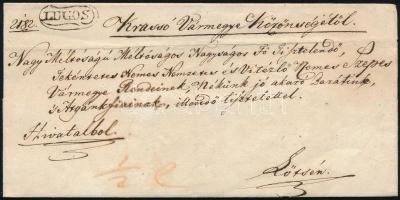 2182. LUGOS Krasso Vármegye Közönségétől.
Nagy Méltóságú Méltóságos, Nagyságos Fő Tisztelendő,
Tekéntetes Nemes Nemzetes és Vitézlő Nemes Szepes
Vármegye Rendeinek, Nékünk jó akaró Barátink,
s Atyánkfiainak, illendő tisztelettel.
Hivatalbol.
1/2
Lőtsén.